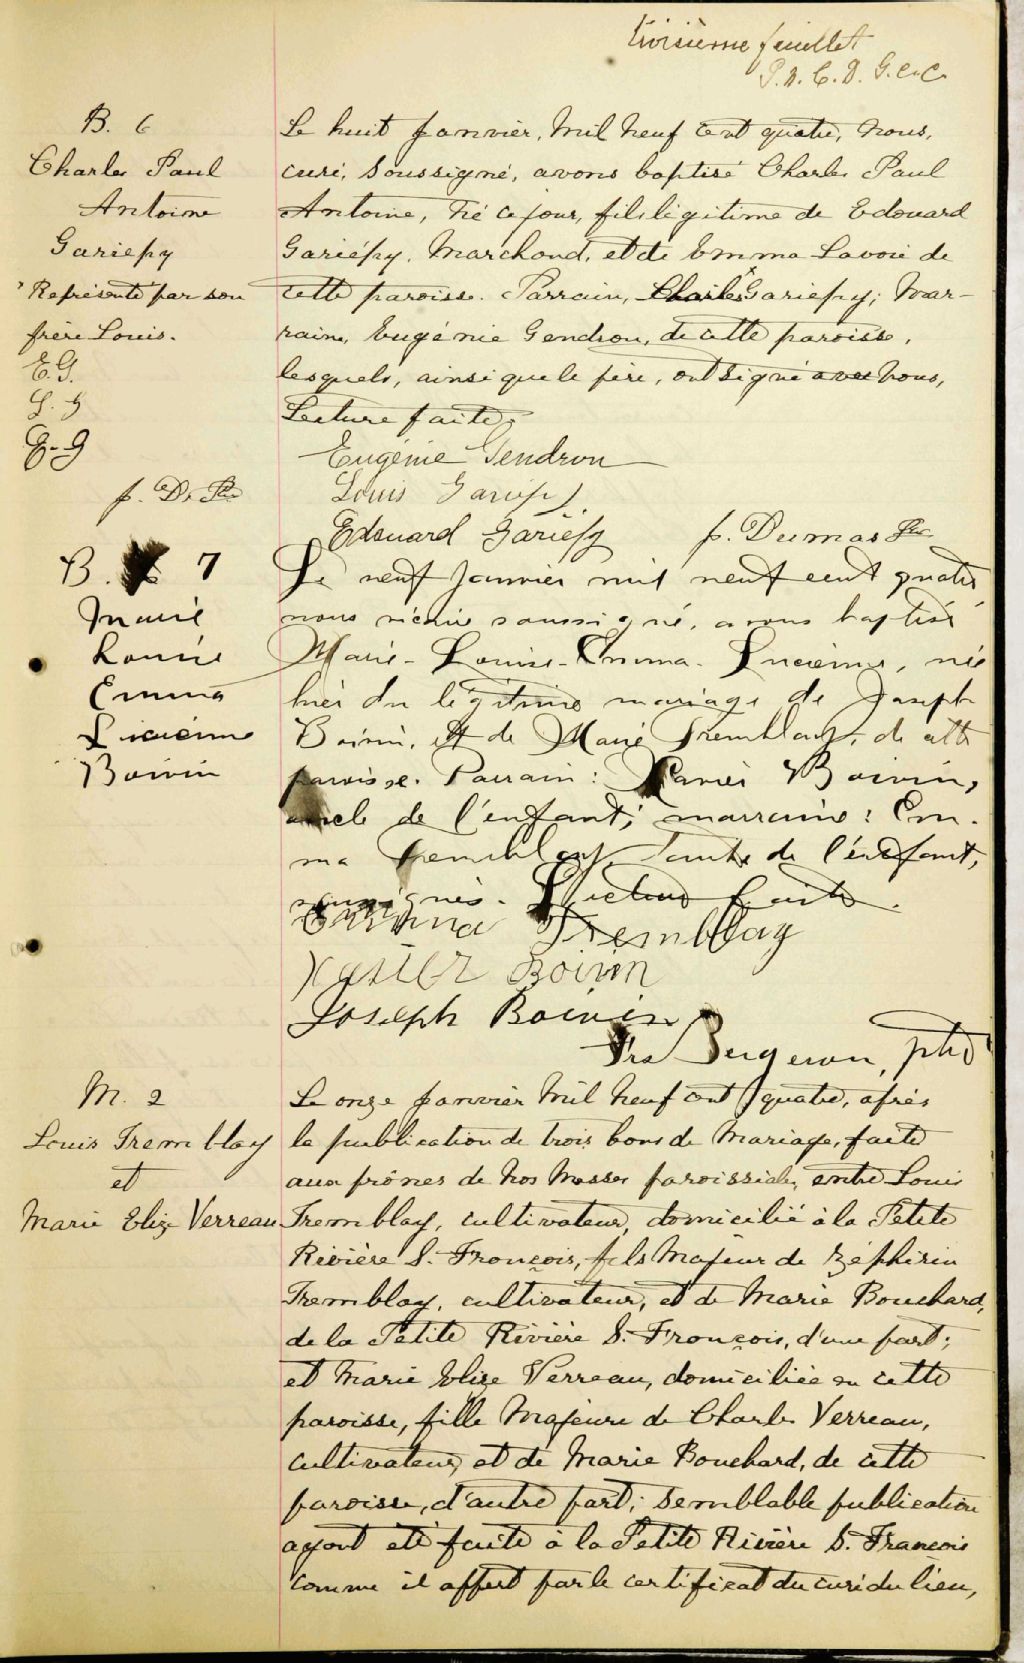 troisième feuillet
P. D. C. D. G. C. C.
B. 6
Charles Paul
Antoine
Gariepy
Représenté par son
frère Louis.
E.G.
L. G
E-G
p. D. Ptre
Le huit Janvier, mil neuf cent quatre, nous,
curé, soussigné, avons baptisé Charles Paul
Antoine, né ce jour, fils légitime de Edouard
Gariépy, Marchand, et de Emma Lavoie de
cette paroisse. Parrain, Charles Gariepy; mar-
raine, Eugénie Gendron, de cette paroisse,
lesquels, ainsi que le père, ont signé avec nous,
Lecture faite.
Eugénie Gendron
Louis Gariepy
Edouard Gariépy p. Dumas Ptre
B. 7
Marie
Louise
Emma
Lucienne
Boivin
Le neuf Janvier mil neuf cent quatre
nous vicaire soussigné, avons baptisé
Marie-Louise-Emma-Lucienne, née
hier du légitime mariage de Joseph
Boivin, et de Marie Tremblay, de cette
paroisse. Parrain: Xavier Boivin,
oncle de l'enfant; marraine: Em-
ma Tremblay, tante de l'enfant,
soussignés. Lecture faite.
Emma Tremblay
Xavier Boivin
Joseph Boivin
Frs Bergeron, ptre
M. 2
Louis Tremblay
et
Marie Elize Verreau
Le onze Janvier mil neuf cent quatre, après
la publication de trois bans de Mariage, faite
aux prônes de nos Messes paroissiales, entre Louis
Tremblay, cultivateur, domicilié à la Petite
Rivière S. François, fils Majeur de Zéphirin
Tremblay, cultivateur, et de Marie Bouchard,
de la Petite Rivière S. François, d'une part;
et Marie Elize Verreau, domiciliée en cette
paroisse, fille Majeure de Charles Verreau,
cultivateur, et de Marie Bouchard, de cette
paroisse, d'autre part; semblable publication
ayant été faite à la Petite Rivière S. François
comme il appert par le certificat du curé du lieu,